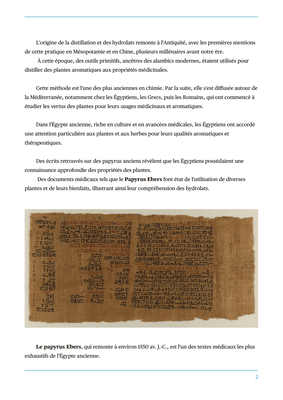 L'origine de la distillation et des hydrolats remonte à l'Antiquité, avec les premières mentions
de cette pratique en Mésopotamie et en Chine, plusieurs millénaires avant notre ère.
À cette époque, des outils primitifs, ancêtres des alambics modernes, étaient utilisés pour
distiller des plantes aromatiques aux propriétés médicinales.
Cette méthode est l'une des plus anciennes en chimie. Par la suite, elle s'est diffusée autour de
la Méditerranée, notamment chez les Égyptiens, les Grecs, puis les Romains, qui ont commencé à
étudier les vertus des plantes pour leurs usages médicinaux et aromatiques.
Dans l'Égypte ancienne, riche en culture et en avancées médicales, les Égyptiens ont accordé
une attention particulière aux plantes et aux herbes pour leurs qualités aromatiques et
thérapeutiques.
Des écrits retrouvés sur des papyrus anciens révèlent que les Égyptiens possédaient une
connaissance approfondie des propriétés des plantes.
Des documents médicaux tels que le Papyrus Ebers font état de l'utilisation de diverses
plantes et de leurs bienfaits, illustrant ainsi leur compréhension des hydrolats.
Le papyrus Ebers, qui remonte à environ 1550 av. J.-C., est l'un des textes médicaux les plus
exhaustifs de l'Égypte ancienne.
2